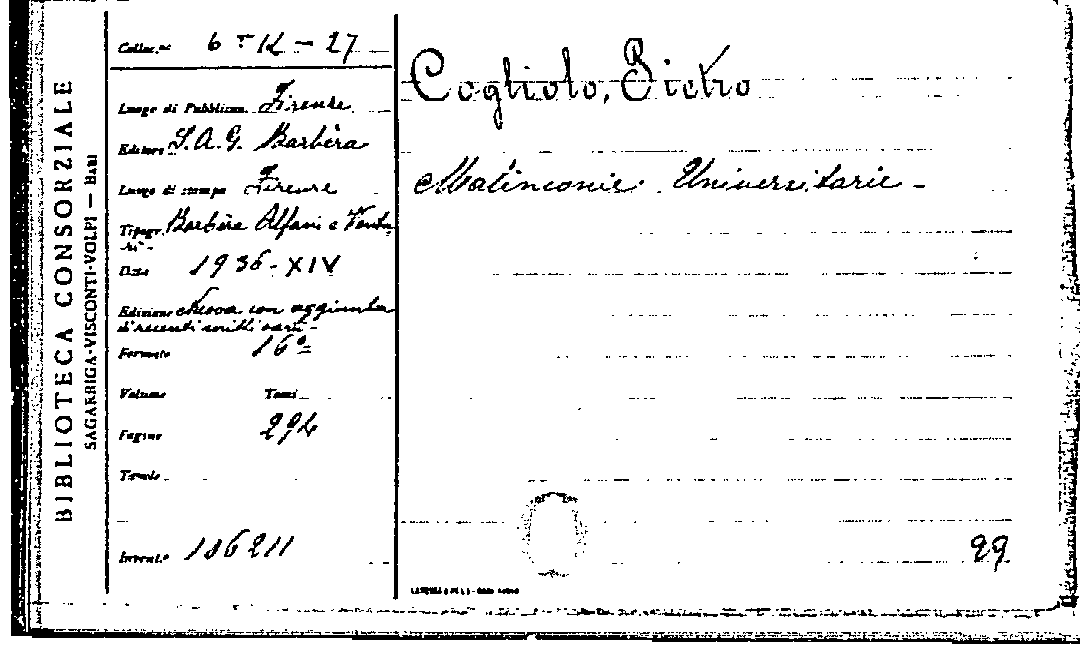 BIBLIOTECA CONSORZIALE
SAGARRIGA-VISCONTI-VOLPI — BARI
Colloc.ne 6-TK-27
Luogo di Pubblicaz. Firenze
Editore S.A.G. Barbèra
Luogo di stampa Firenze
Tipogr. Barbèra Alfani e Ventu
ri-
Data 1936-XIV
Edizione Nuova con aggiunta
di recenti scritti vari-
Formato 16º
Volume Tomi
Pagine 294
Tavole
Invent.º 106211
Cogliolo, Pietro
Malinconie Universitarie -
99